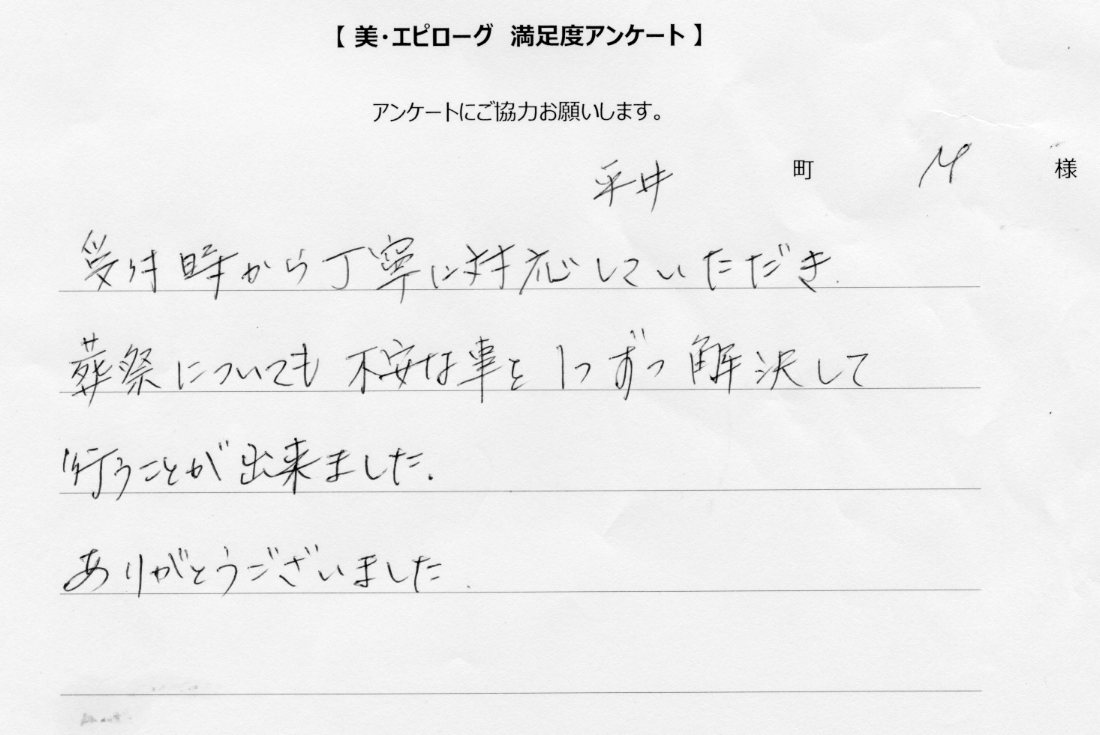 【 美・エピローグ 満足度アンケート 】
アンケートにご協力お願いします。
平井 町 M 様
受付時から丁寧に対応していただき.
葬祭についても不安な事を1つずつ解決して
行うことが出来ました.
ありがとうございました.